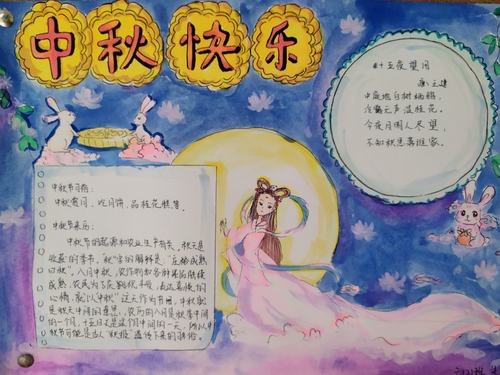 中秋快乐
十五夜望月
唐:王建
中庭地白树栖鸦,
冷露无声湿桂花。
今夜月明人尽望,
不知秋思落谁家。
中秋节习俗:
中秋赏月、吃月饼、品桂花糕等。
中秋节来历:
中秋节的起源和农业生产有关,秋天是
收获的季节。"秋"字的解释是:"庄稼成熟
曰秋"。八月中秋,农作物和各种果品陆续
成熟,农民为了庆祝丰收,表达喜悦的
心情,就以"中秋"这天作为节日。中秋就
是秋天中间的意思,农历的八月是秋季中间
的一个月,十五日又是这个月中间的一天,所以中
秋节可能是古人"秋报"遗传下来的习俗。